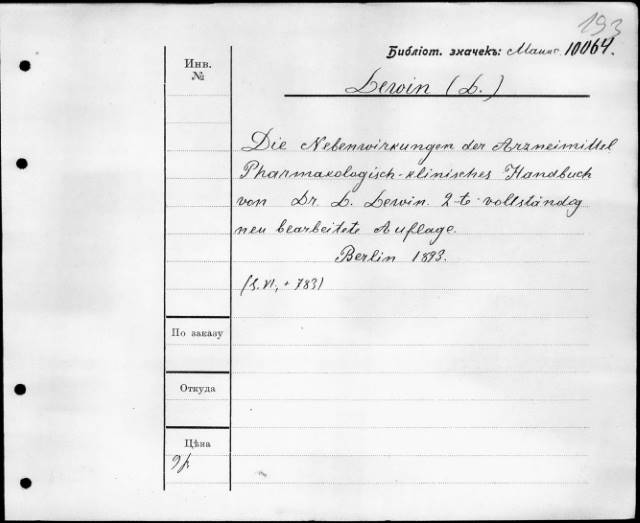 193
Библіот. значекъ: Машис. 10064.
Инв.
№
Lewin (L.)
Die Nebenwirkungen der Arzneimittel
Pharmakologisch-klinisches Handbuch
von Dr. L. Lewin. 2-te vollständig
neu bearbeitete Auflage.
Berlin 1893.
(S. VI, + 783)
По заказу
Откуда
Цѣна
9 р.